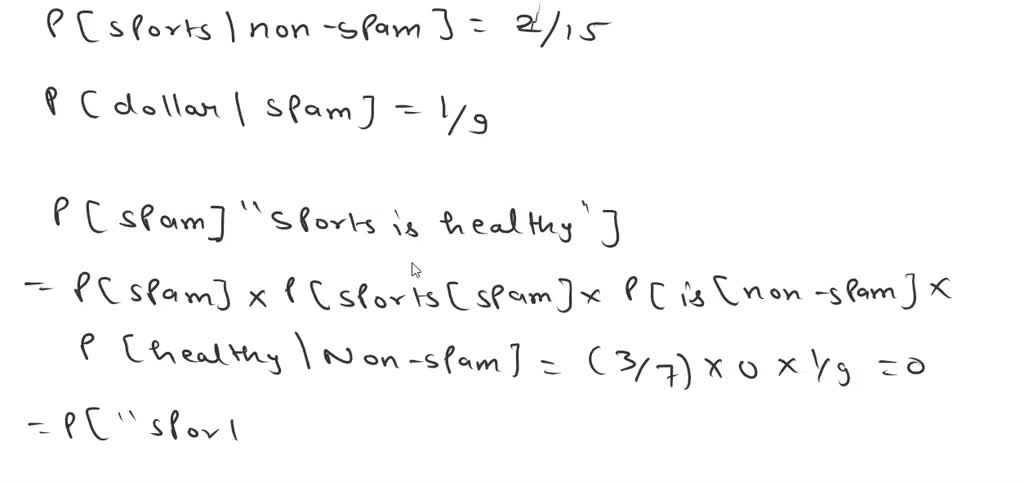 P[sports|non-spam] = 2/15
P[dollar|spam] = 1/9
P[spam]"sports is healthy"]
= P[spam] x P[sports[spam] x P[is[non-spam] x
P[healthy|Non-spam] = (3/7) x 0 x 1/9 = 0
= P["spor